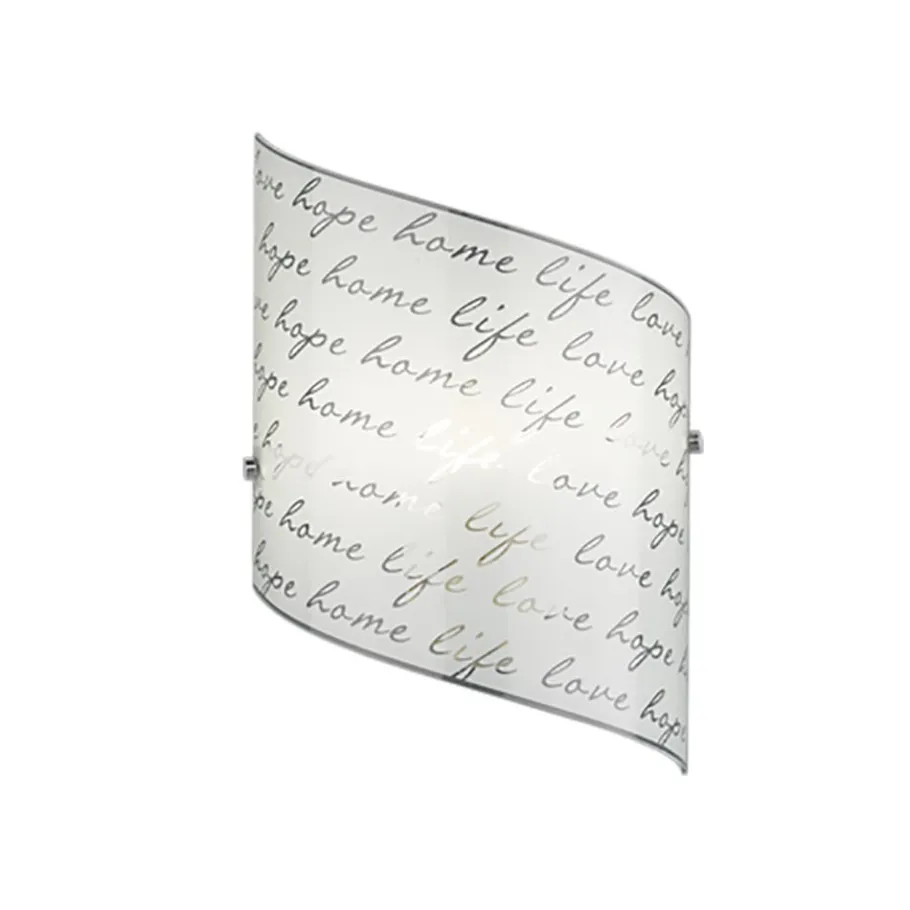 love hope home life love
hope home life love hop
ve hope home life love h
hope home life love hope
hope home life love hop
pe home life love hope h
hope home life love hope